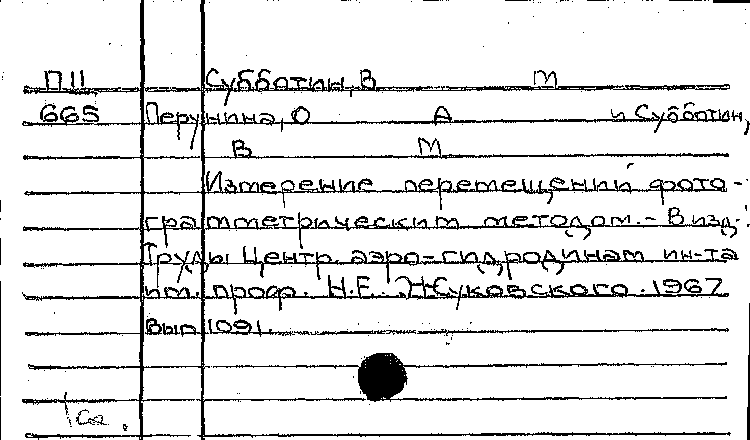 П11 Субботин, В М
665 Перунина, О А и Субботин,
В М
Измерение перемещений фото-
грамметрическим методом. - В изд.:
Труды Центр. аэро-гидродинам ин-та
им. проф. Н.Е. Жуковского. 1967
вып 1091.